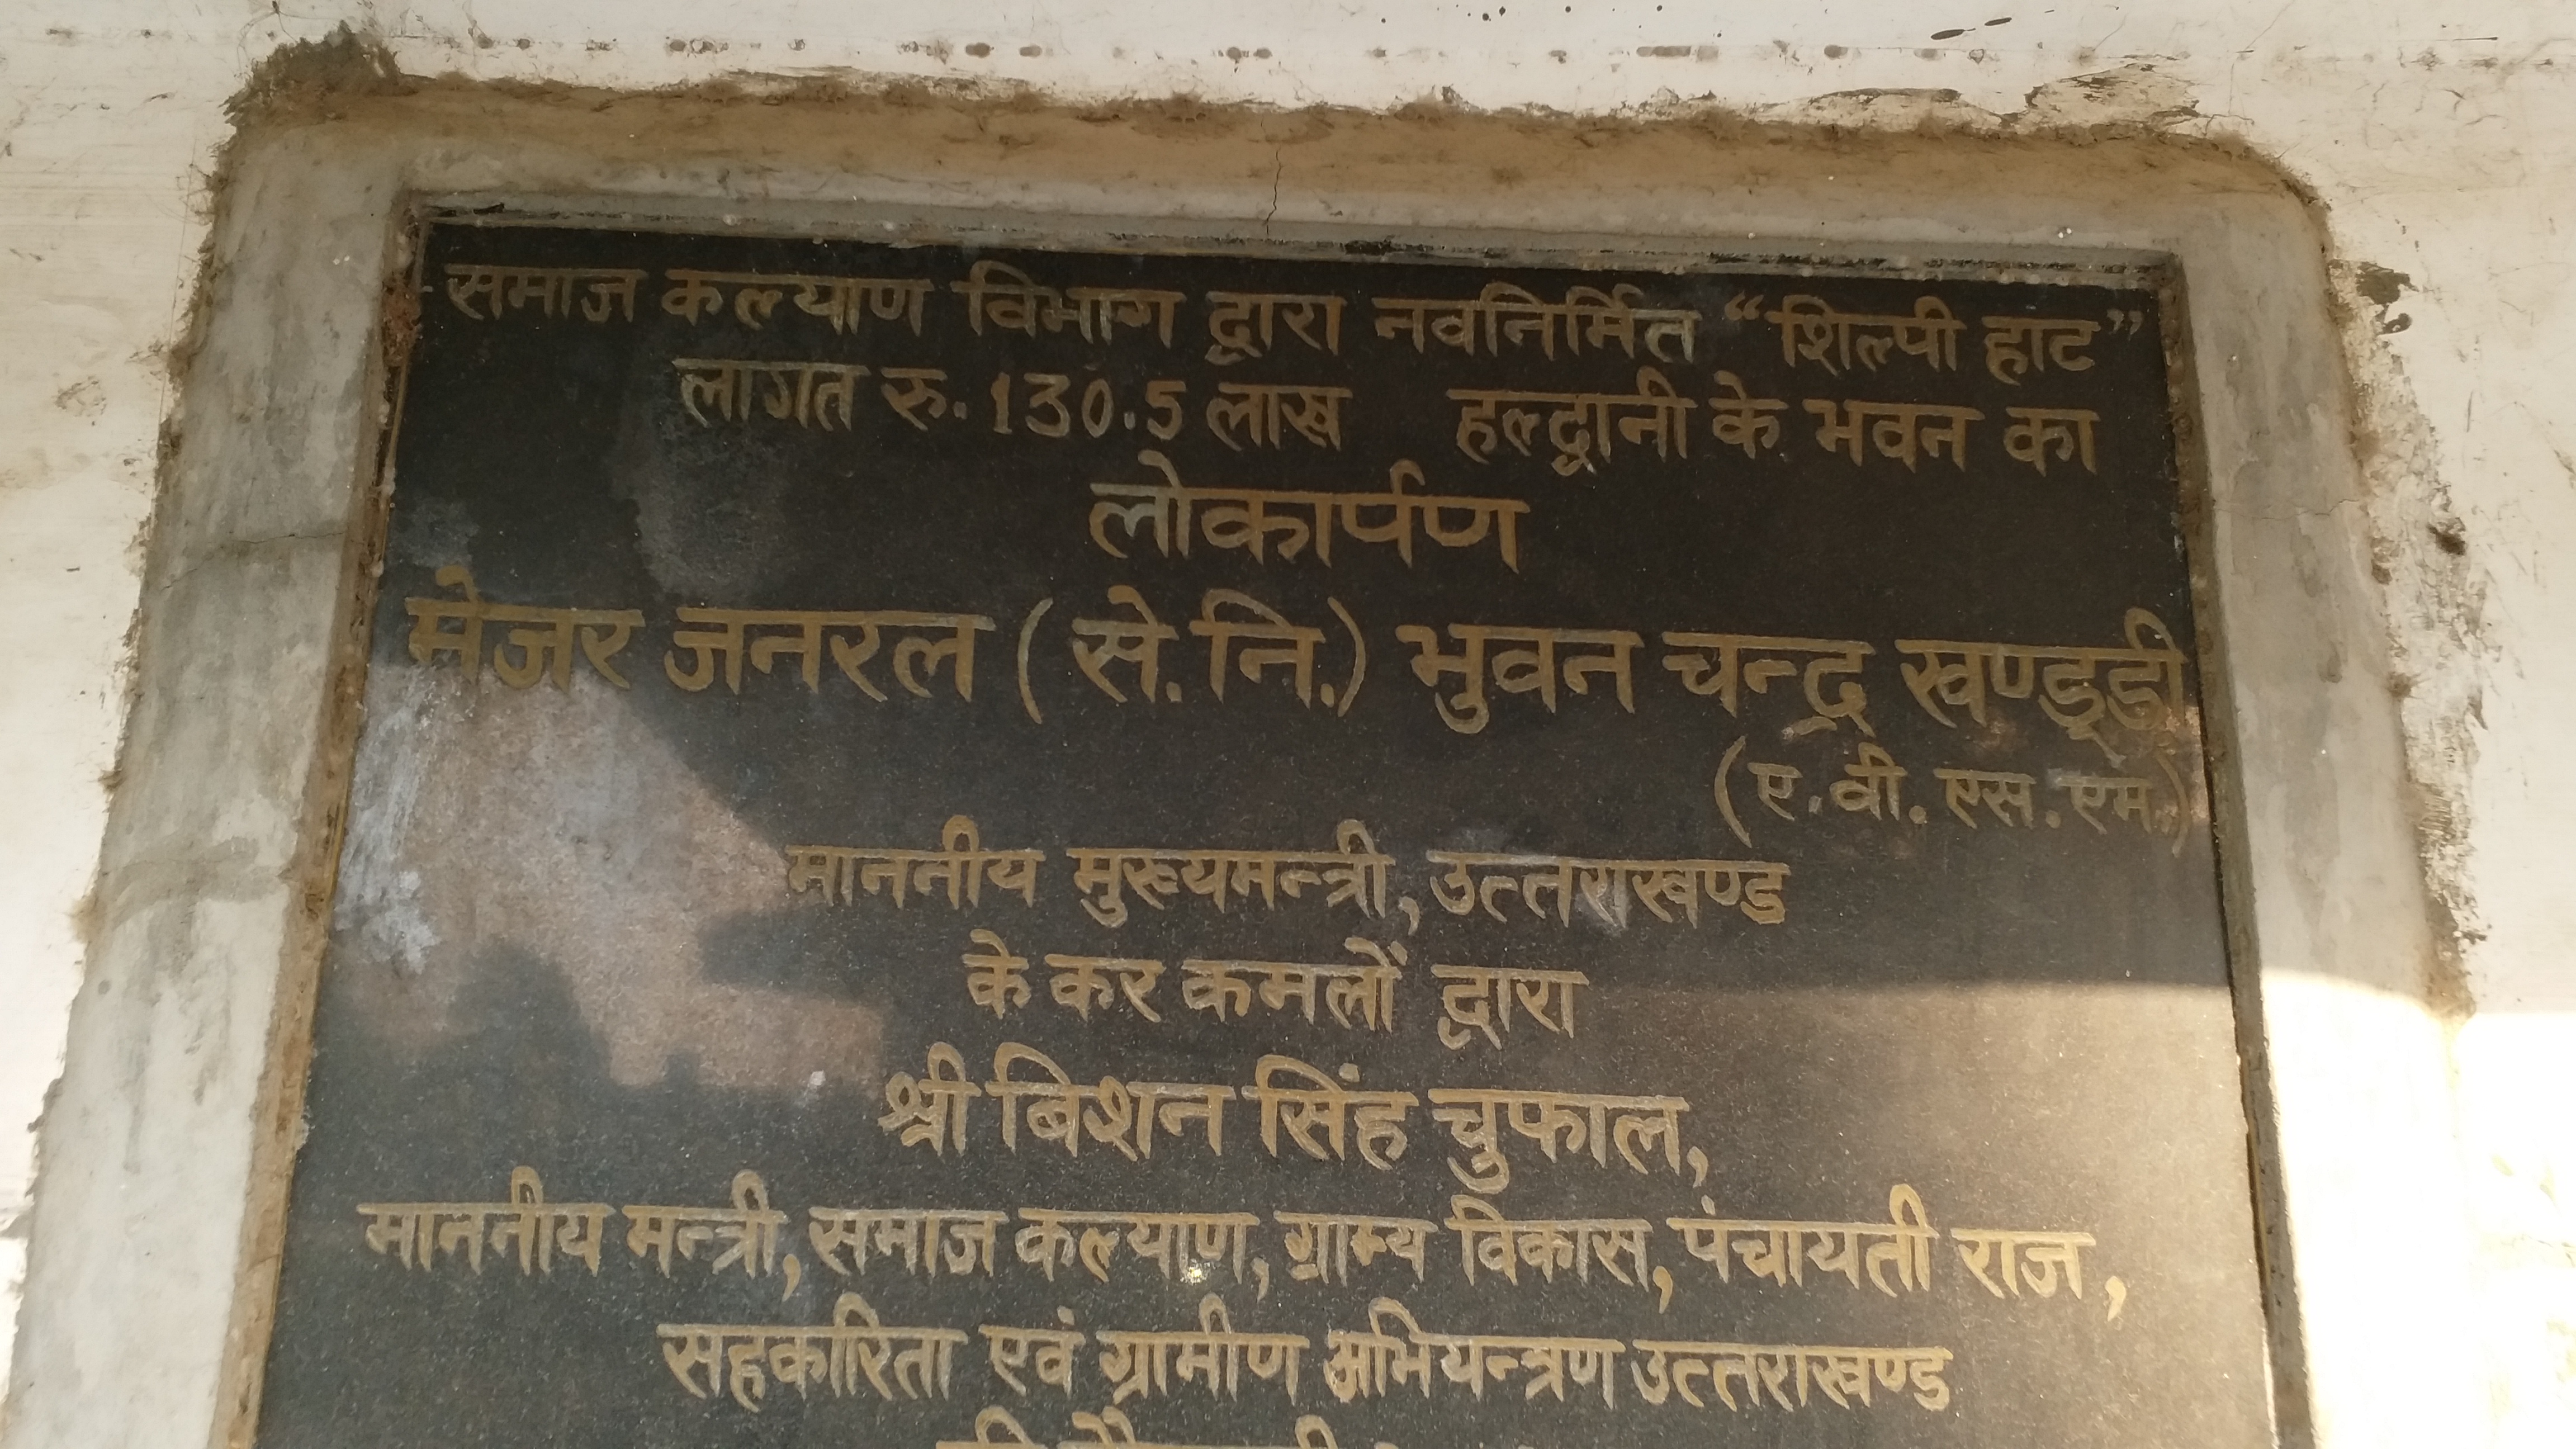 समाज कल्याण विभाग द्वारा नवनिर्मित “शिल्पी हाट”
लागत रु. 130.5 लाख हल्द्वानी के भवन का
लोकार्पण
मेजर जनरल (से.नि.) भुवन चन्द्र खण्डूडी
(ए.वी.एस.एम.)
माननीय मुख्यमन्त्री, उत्तराखण्ड
के कर कमलों द्वारा
श्री बिशन सिंह चुफाल,
माननीय मन्त्री, समाज कल्याण, ग्राम्य विकास, पंचायती राज,
सहकारिता एवं ग्रामीण अभियन्त्रण उत्तराखण्ड